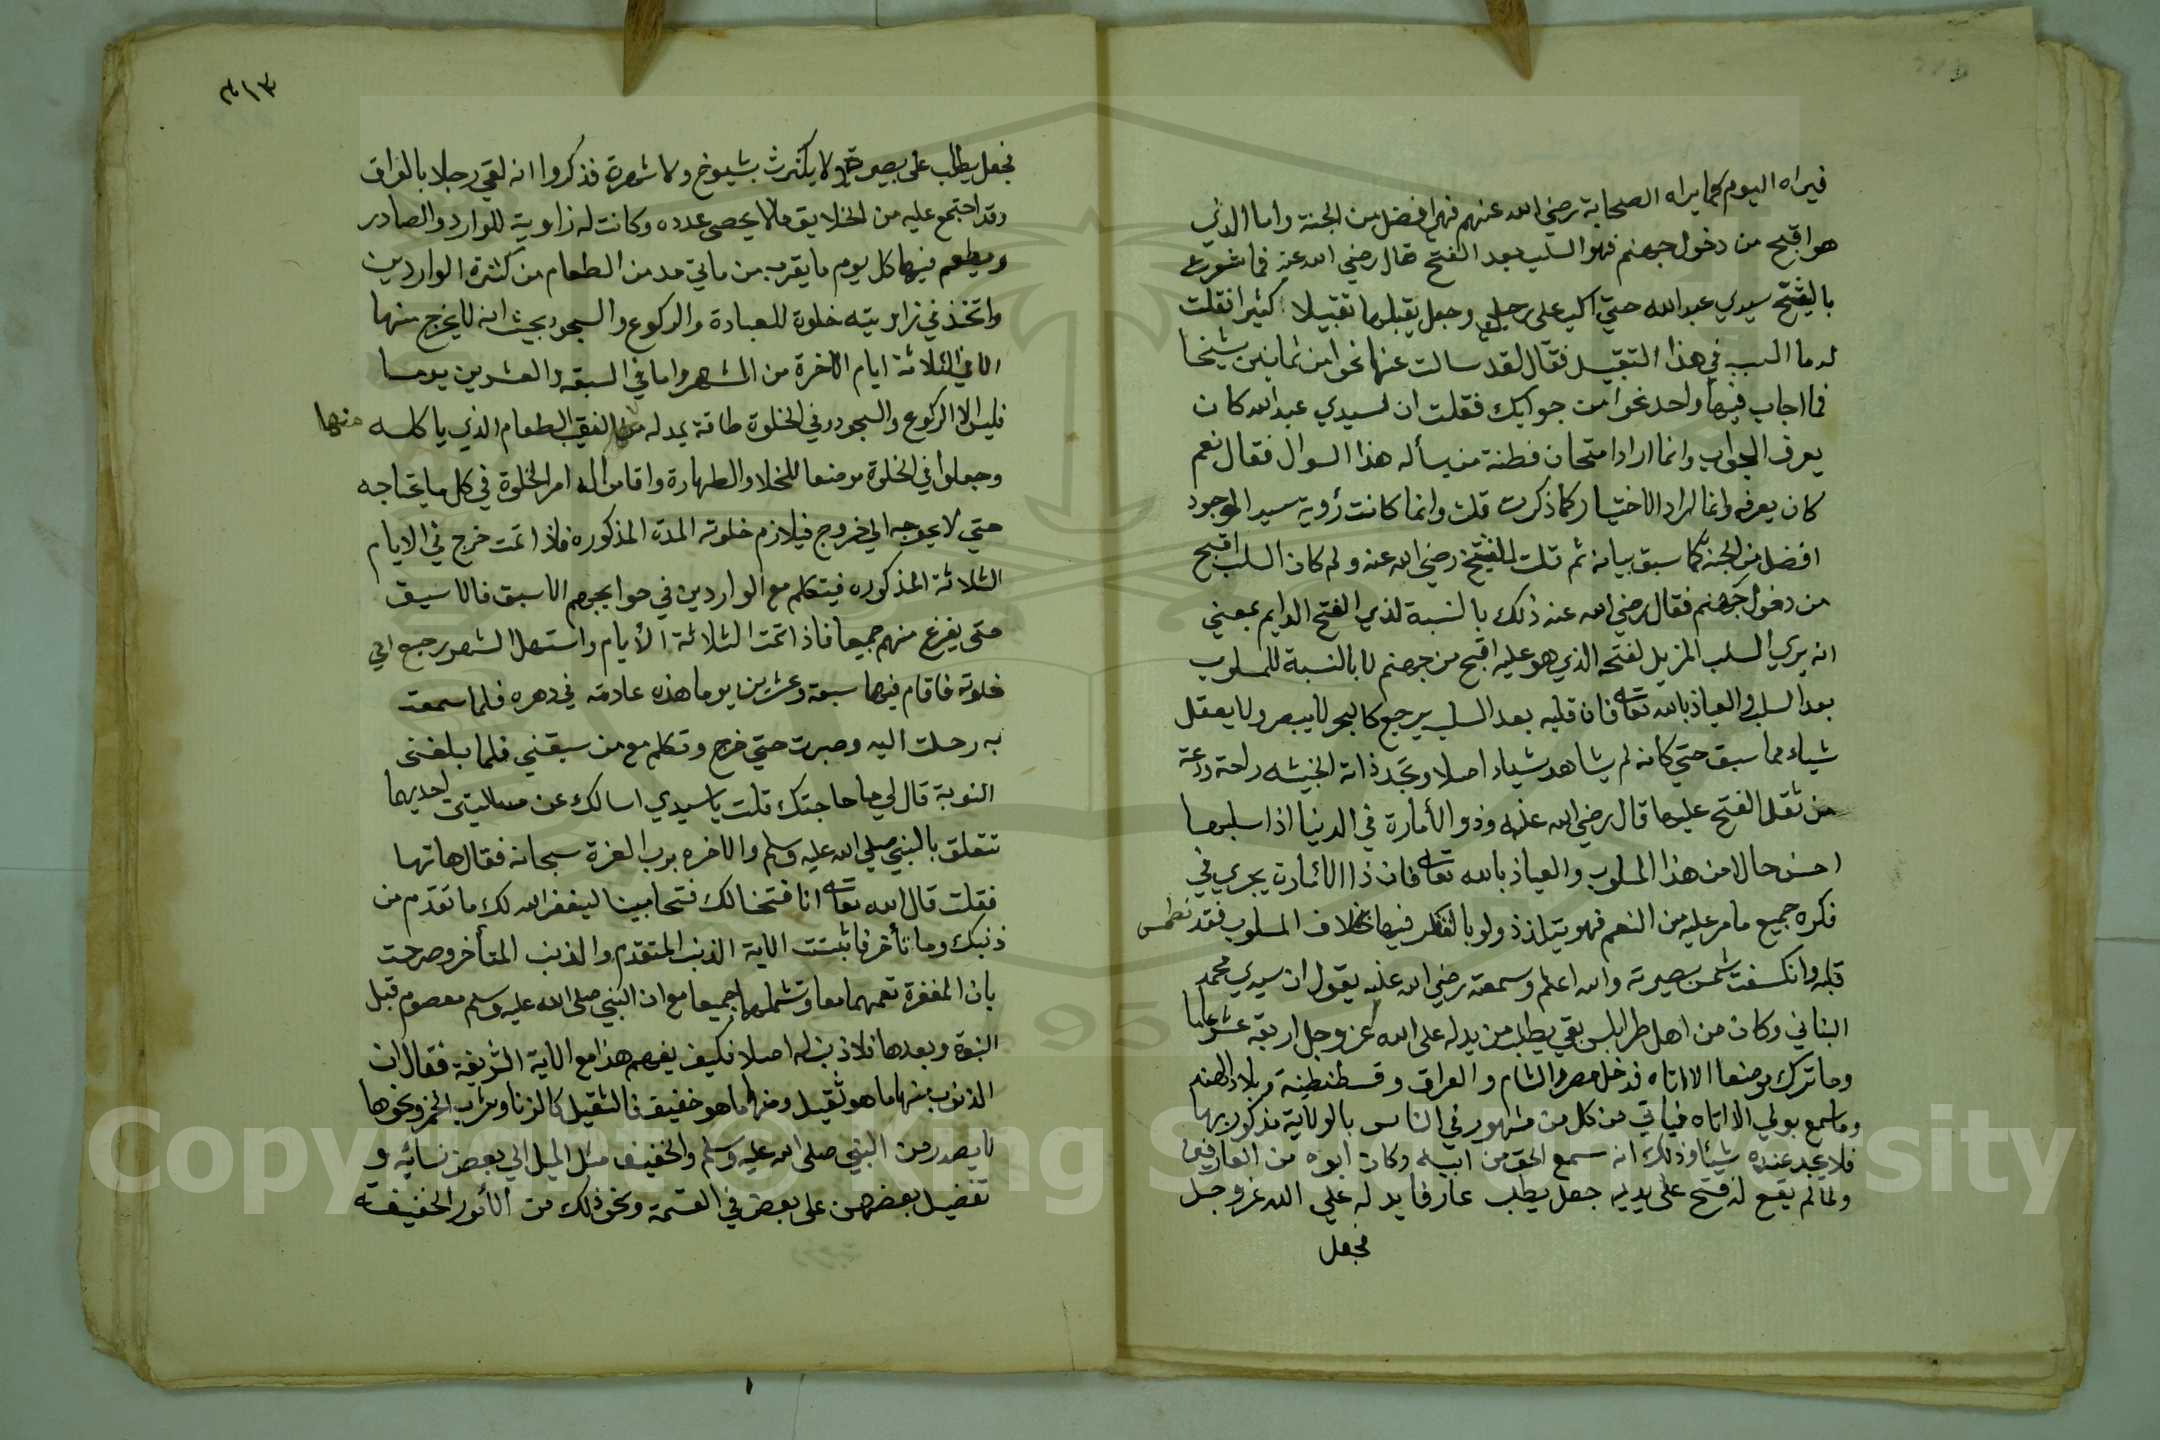 فيراه اليوم كما يراه الصحابة رضي الله عنهم فهو افضل من الجنة واما الذي
هو اقبح من دخول جهنم فهو السلب بعد الفتح قال رضي الله عنه فما شعرت
بالشيخ سيدي عبد الله حتي اكب علي رجلي وجعل يقبلها تقبيلا كثيرا فقلت
له ما السبب في هذا التقبيل فقال لقد سالت عنها نحوا من ثمانين شيخا
فما اجاب فيها واحد نحوا من جوابك فقلت ان لسيدي عبد الله كان
يعرف الجواب وانما اراد امتحان فطنة من يسأله هذا السوال فقال نعم
كان يعرفه وانما اراد الاختيار كما ذكرت قلت وانما كانت رؤية سيد الوجود
افضل من الجنة كما سبق بيانه ثم قلت للشيخ رضي الله عنه ولم كان السلب اقبح
من دخول جهنم فقال رضي الله عنه ذلك بالنسبة لذي الفتح الدايم بمعني
انه يري السلب المزيل لفتحه الذي هو عليه اقبح من جهنم لا بالنسبة للمسلوب
بعد السلب والعياذ بالله تعالى فان قلبه بعد السلب يرجع كالحجر لا يبصر ولا يعقل
شياء مما سبق حتي كانه لم يشاهد شياء اصلا وتجد ذاته الخبيثه راحة ودعة
من ثقل الفتح عليها قال رضي الله عنه وذو الأمارة في الدنيا اذا سلبها
احسن حالا من هذا المسلوب والعياذ بالله تعالى فان ذا الامارة يجري في
فكره جميع ما مر عليه من النعم فهو يتلذذ ولو بالفكر فيها بخلاف المسلوب فقد نطمس
قلبه وانكسفت شمس بصيرته والله اعلم وسمعته رضي الله عنه يقول ان سيدي محمد
البناني وكان من اهل طرابلس بقي يطلب من يدله علي الله عز وجل اربعة عشر عاما
وما ترك موضعا الا اتاه فدخل مصر والشام والعراق وقسطنطينة وبلاد الهند
وما سمع بولي الا اتاه فياتي من كل من مشهور في الناس بالولاية مذكور بها
فلا يجد عنده شيئا وذلك انه سمع الحق من ابيه وكان ابوه من العارفين
ولما لم يقع له فتح علي يديه جعل يطلب عارفا يدله علي الله عز وجل
فجعل
٣١٣
فجعل يطلب علي بصيرة ولا يكترث بشيوخ ولا شهرة فذكروا انه لقي رجلا بالعراق
وقد اجتمع عليه من الخلايق ما لا يحصي عدده وكانت له زاوية للوارد والصادر
ويطعم فيها كل يوم ما يقرب من ماتي مد من الطعام من كثرة الواردين
واتخذ في زاويته خلوة للعبادة والركوع والسجود بحيث انه لا يخرج منها
الا في الثلاثة ايام الاخرة من الشهر واما في السبعة والعشرين يوما
فليس الا الركوع والسجود وفي الخلوة طاقة يمد له منها النقيب الطعام الذي ياكله منها
وجعلوا في الخلوة موضعا للخلا والطهارة واقاموا له امر الخلوة في كل ما يحتاجه
حتي لا يحوجه الي خروج فيلازم خلوته المدة المذكورة فاذا تمت خرج في الايام
الثلاثة المذكوره فيتكلم مع الواردين في حوايجهم الاسبق فالاسبق
حتي يفرغ منهم جميعا فاذا تمت الثلاثة الأيام واستهل الشهر رجع الي
خلوته فاقام فيها سبعة وعشرين يوما هذه عادته في دهره فلما سمعت
به رحلت اليه وصبرت حتي خرج وتكلم مع من سبقني فلما بلغتني
النوبة قال لي ما حاجتك قلت يا سيدي اسالك عن مسئلتين احديهما
تتعلق بالنبي صلي الله عليه وسلم والاخره برب العزة سبحانه فقال هاتها
فقلت قال الله تعالى انا فتحنا لك فتحا مبينا ليغفر الله لك ما تقدم من
ذنبك وما تأخر فاثبتت الاية الذنب المتقدم والذنب المتأخر وصرحت
بان المغفرة تعمهما معا وتشملهما جميعا مع ان النبي صلي الله عليه وسلم معصوم قبل
النبوة وبعدها فلا ذنب له اصلا فكيف يفهم هذا مع الاية الشريفة فقال ان
الذنوب منها ما هو ثقيل ومنها ما هو خفيف فالثقيل كالزنا وشرب الخمر ونحوها
لا يصدر من النبي صلي الله عليه وسلم والخفيف مثل الميل الي بعض نسائه و
تفضيل بعضهن علي بعض في القسمة ونحو ذلك من الأمور الخفيفة
Copyright © King Saud University